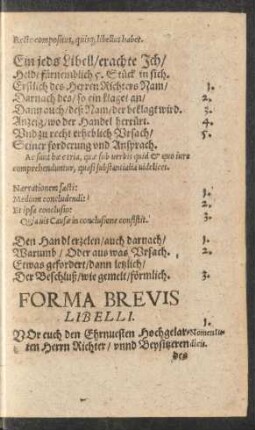 Recte compositus, quisq; libellus habet.
Ein jeds Libell / erachte Ich /
Helde fürnemblich 5. Stück in sich.
Erstlich des Herren Richters Nam / 1.
Darnach des / so ein klaget an / 2.
Dann auch / deß Nam / der beklagt wird. 3.
Anzeig / wo der Handel herrürt. 4.
Vnd zu recht erheblich Vrsach / 5.
Seiner forderung vnd Ansprach.
Ac sunt hæc tria, quæ sub verbis quid & quo iure
comprehenduntur, quasi substantialia videlicet.
Narrationem facti: 1.
Medium concludendi: 2.
Et ipsa conclusio: 3.
Quauis Causa in conclusione consistit.
Den Handl erzelen / auch darnach / 1.
Warumb / Oder aus was Vrsach. 2.
Etwas gefordert / dann letzlich /
Der Beschluß / wie gemelt / förmlich. 3.
FORMA BREVIS
LIBELLI.
1.
VOr euch den Ehrnuesten Hochgelar- Nomen iu-
ten Herrn Richter / vnnd Beysitzeren dicis.
des